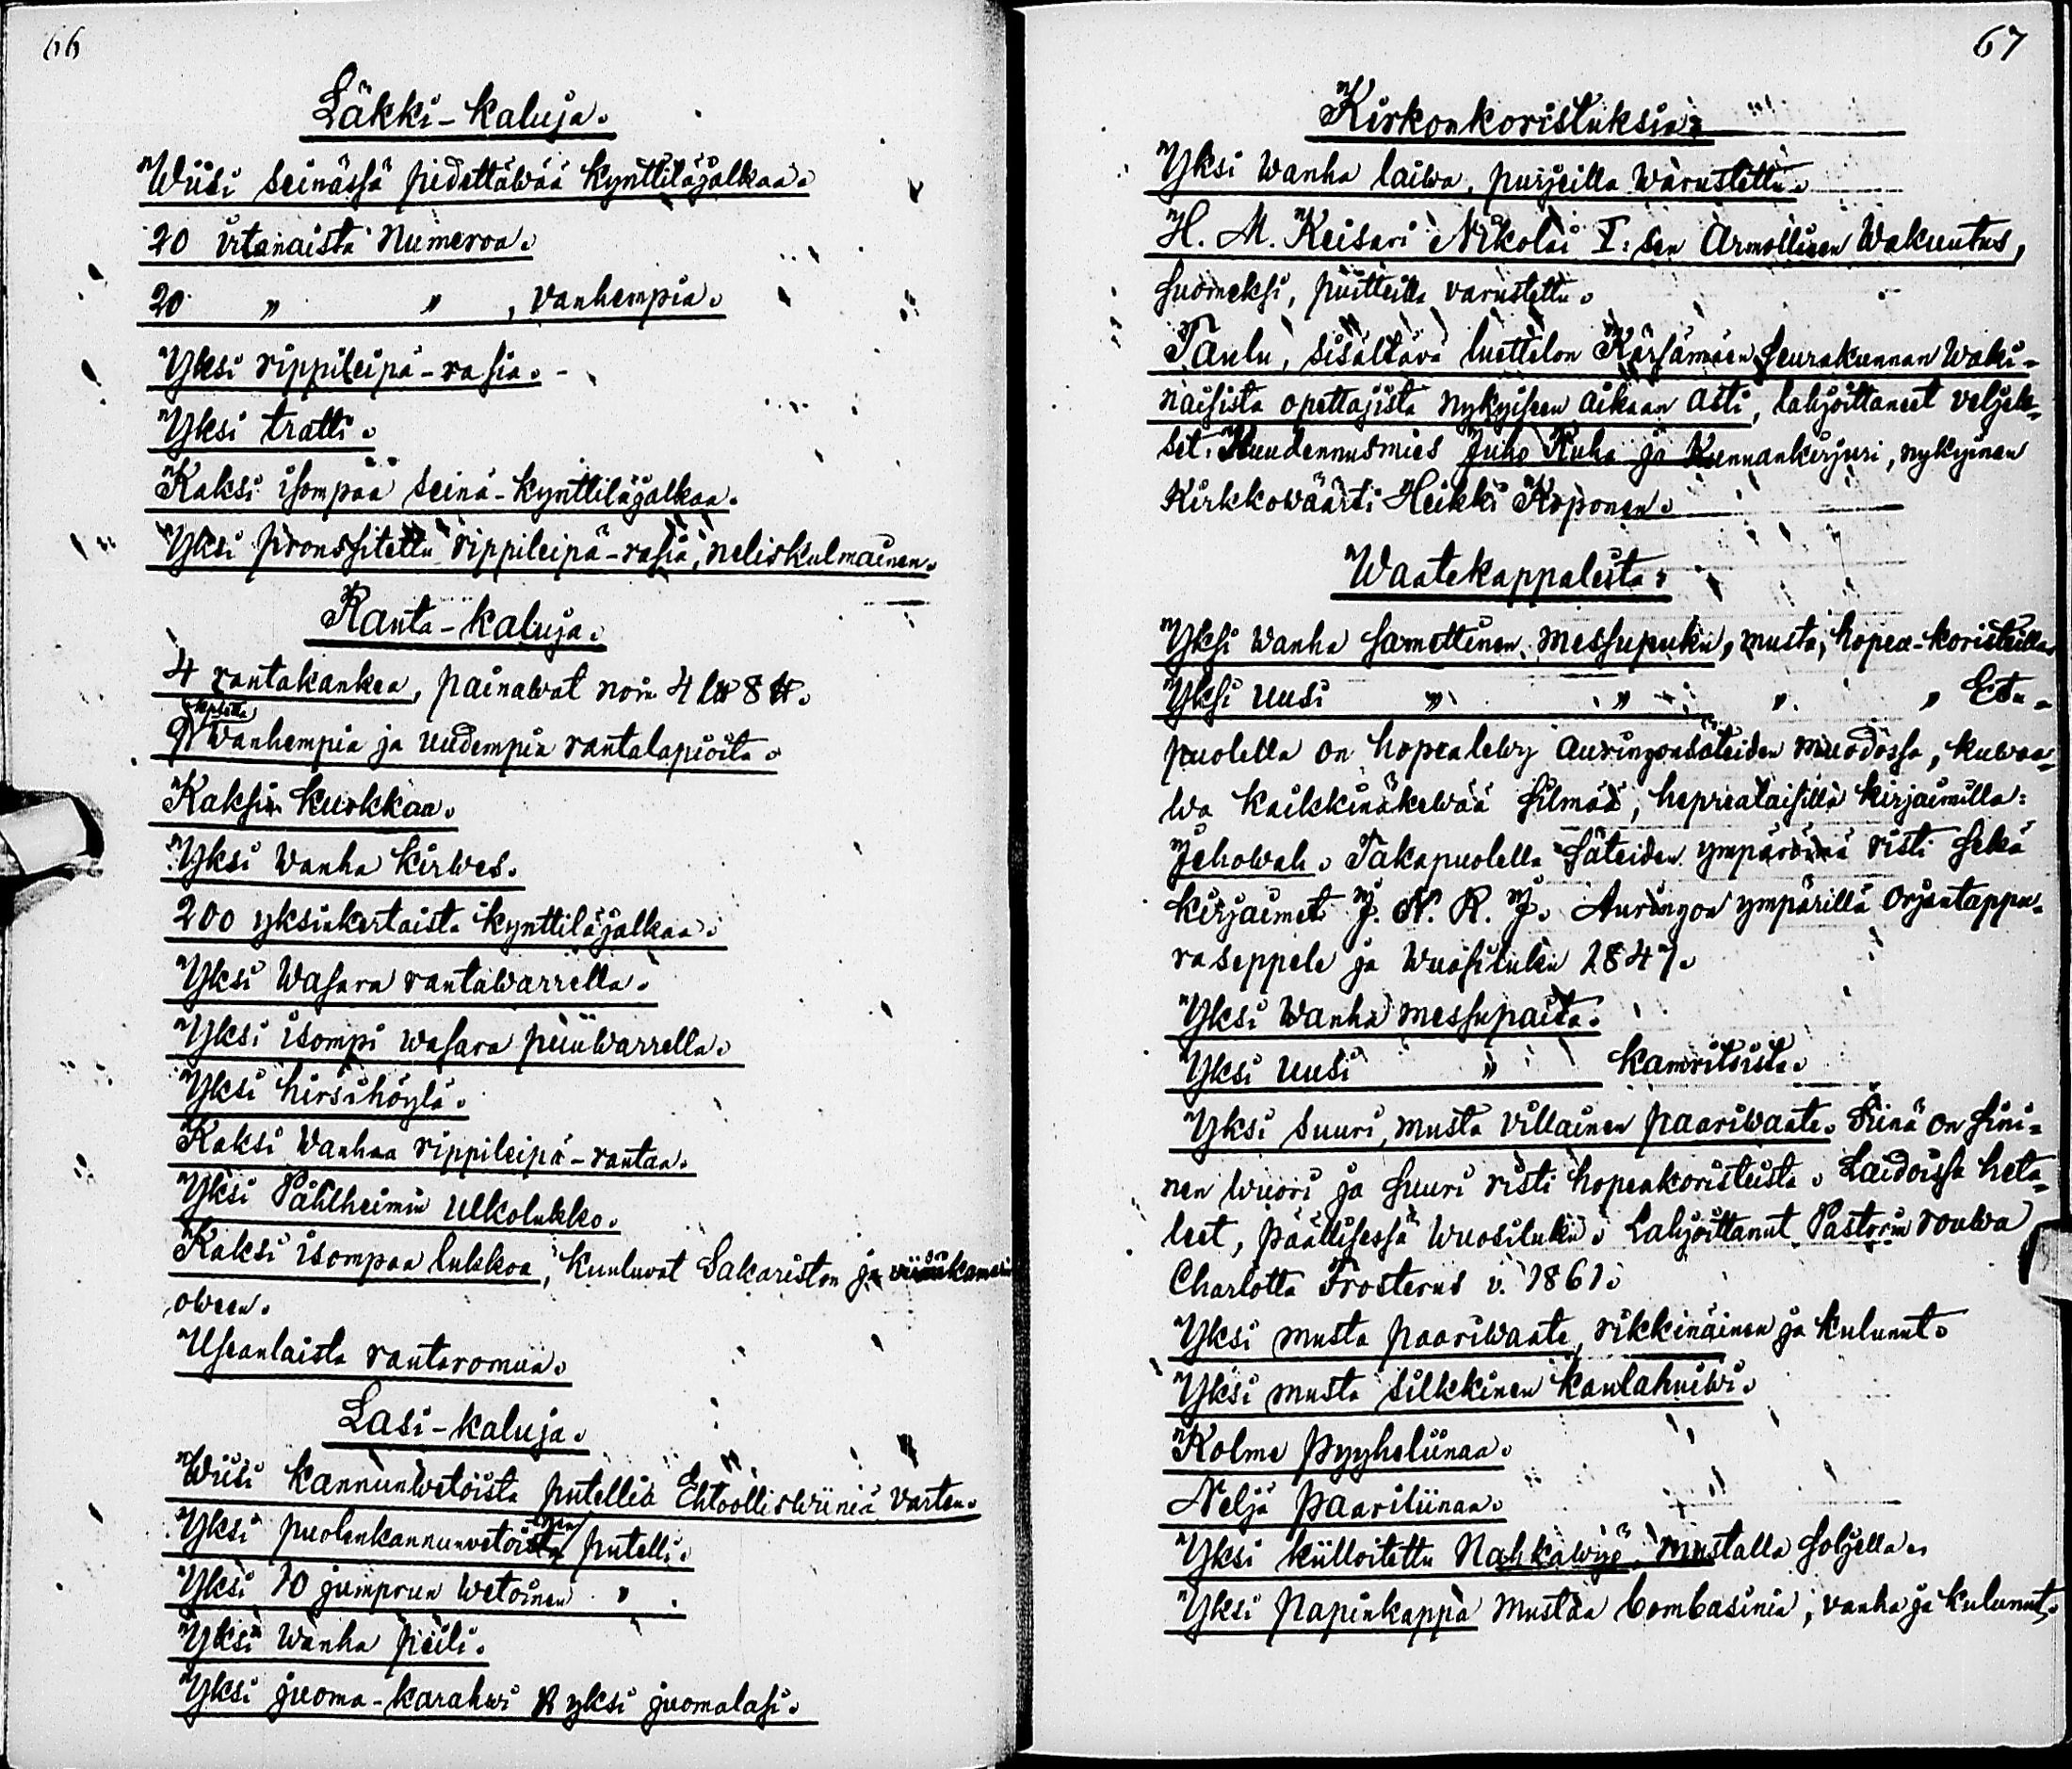 66
Läkki-kaluja.
Wiisi seinässä pidettäwää kynttiläjalkaa.
20 irtanaista Numeroa.
20 " " , vanhempia.
Yksi rippileipä-rasia.
Yksi tratti.
Kaksi isompaa seinä-kynttiläjalkaa.
Yksi pronssitettu rippileipä-rasia, neliskulmainen.
Rauta-kaluja.
4 rautakankea, painawat noin 4 l℔ 8 ℔.
kpletta
9 wanhempia ja uudempia rautalapioita.
Kaksi kuokkaa.
Yksi wanha kirwes.
200 yksinkertaista kynttiläjalkaa.
Yksi Wasara rautawarrella.
Yksi isompi wasara puuwarrella.
Yksi hirsihöylä.
Kaksi Wanhaa rippileipä-rautaa.
Yksi Påhlheimin Ulkolukko.
Kaksi isompaa lukkoa, kuuluvat Sakariston ja viinikamarin
oween.
Useanlaista rautaromua.
Lasi-kaluja.
Wiisi kannunwetoista putellia Ehtoolliswiiniä varten.
Yksi puolenkannunvetoinen putelli.
Yksi 10 jumprun wetoinen "
Yksi Wanha peili.
Yksi juoma-karahwi & yksi juomalasi.
67
Kirkonkoristuksia.
Yksi Wanha laiwa, purjeilla warustettu.
H. M. Keisari Nikolai I:sen Armollinen Wakuutus,
suomeksi, puitteilla varustettu.
Taulu, sisältävä luettelon Kärsämäen Seurakunnan Waki-
naisista opettajista nykyiseen aikaan asti, lahjoittaneet veljek-
set, Kuudennusmies Juho Kuha ja Kunnankirjuri, nykyinen
Kirkkowäärti Heikki Koponen.
Waatekappaleita.
Yksi Wanha samettinen messupuku, musta, hopea-koristeilla
Yksi Uusi " " " " Etu-
puolella on hopealewy auringonsäteiden muodossa, kuwaa-
wa kaikkinäkewää silmää, heprealaisilla kirjaimilla:
Jehowah. Takapuolella säteiden ympäröimä risti sekä
kirjaimet J. N. R. J. Auringon ympärillä Orjantappu-
raseppele ja Wuosiluku 1847.
Yksi Wanha messupaita.
Yksi Uusi " kamritsista.
Yksi Suuri, musta villainen paariwaate. Siinä on sini-
nen Wuori ja suuri risti hopeakoristeista. Laidoissa heta-
leet, päällisessä Wuosiluku. Lahjoittanut Pastorin rouwa
Charlotta Frosterus v. 1861.
Yksi musta paariwaate, rikkinäinen ja kulunut.
Yksi musta silkkinen kaulahuiwi.
Kolme pyyheliinaa.
Neljä paariliinaa.
Yksi kiilloitettu Nahkawyö, mustalla soljella.
Yksi Papinkappa mustaa bombasinia, vanha ja kulunut.